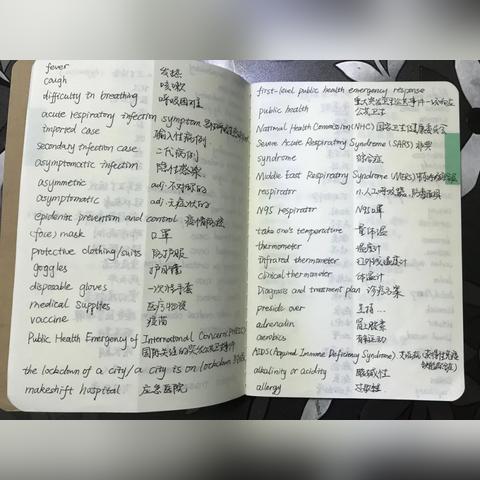 fever 发热
cough 咳嗽
difficulty in breathing 呼吸困难
acute respiratory infection symptom
imported case 输入性病例
secondary infection case 二代病例
asymptomatic infection 隐性感染
asymmetric adj.不对称的
asymptomatic adj.无症状的
epidemic prevention and control 疫情防控
(face) mask 口罩
protective clothing/suits 防护服
goggles 护目镜
disposable gloves 一次性手套
medical supplies 医疗物资
vaccine 疫苗
Public Health Emergency of International Concern(PHEIC)
国际关注的突发公共卫生事件
the lockdown of a city/a city is on lockdown
makeshift hospital 应急医院
first-level public health emergency response
重大突发公共卫生事件一级响应
public health 公共卫生
National Health Commission(NHC) 国家卫生健康委员会
Severe Acute Respiratory Syndrome (SARS) 非典
syndrome 综合症
Middle East Respiratory Syndrome (MERS)
respirator n.人工呼吸器,防毒面具
N95 respirator N95口罩
take one's temperature 量体温
thermometer 温度计
infrared thermometer 红外线温度计
clinical thermometer 体温计
Diagnosis and treatment plan 诊疗方案
preside over 主持...
adrenalin 肾上腺素
aerobics 有氧运动
AIDS(Acquired Immune Deficiency Syndrome) 艾滋病
alkalinity or acidity 酸碱性
allergy 过敏性